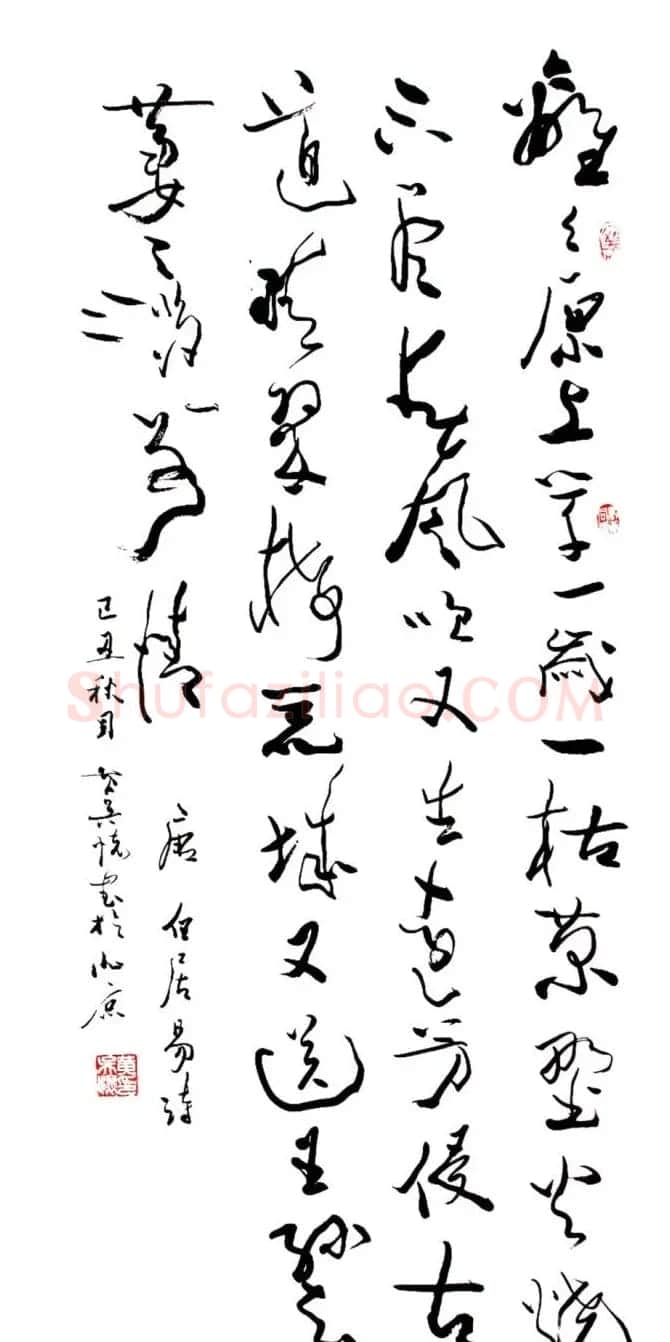 離々原上草一歲一枯荣野火燒
不尽春風吹又生遠芳侵古
道晴翠接荒城又送王孫
萋々滿別情
唐 白居易詩
己丑秋月 黄吴懷書於北京
Shufaziliao.COM